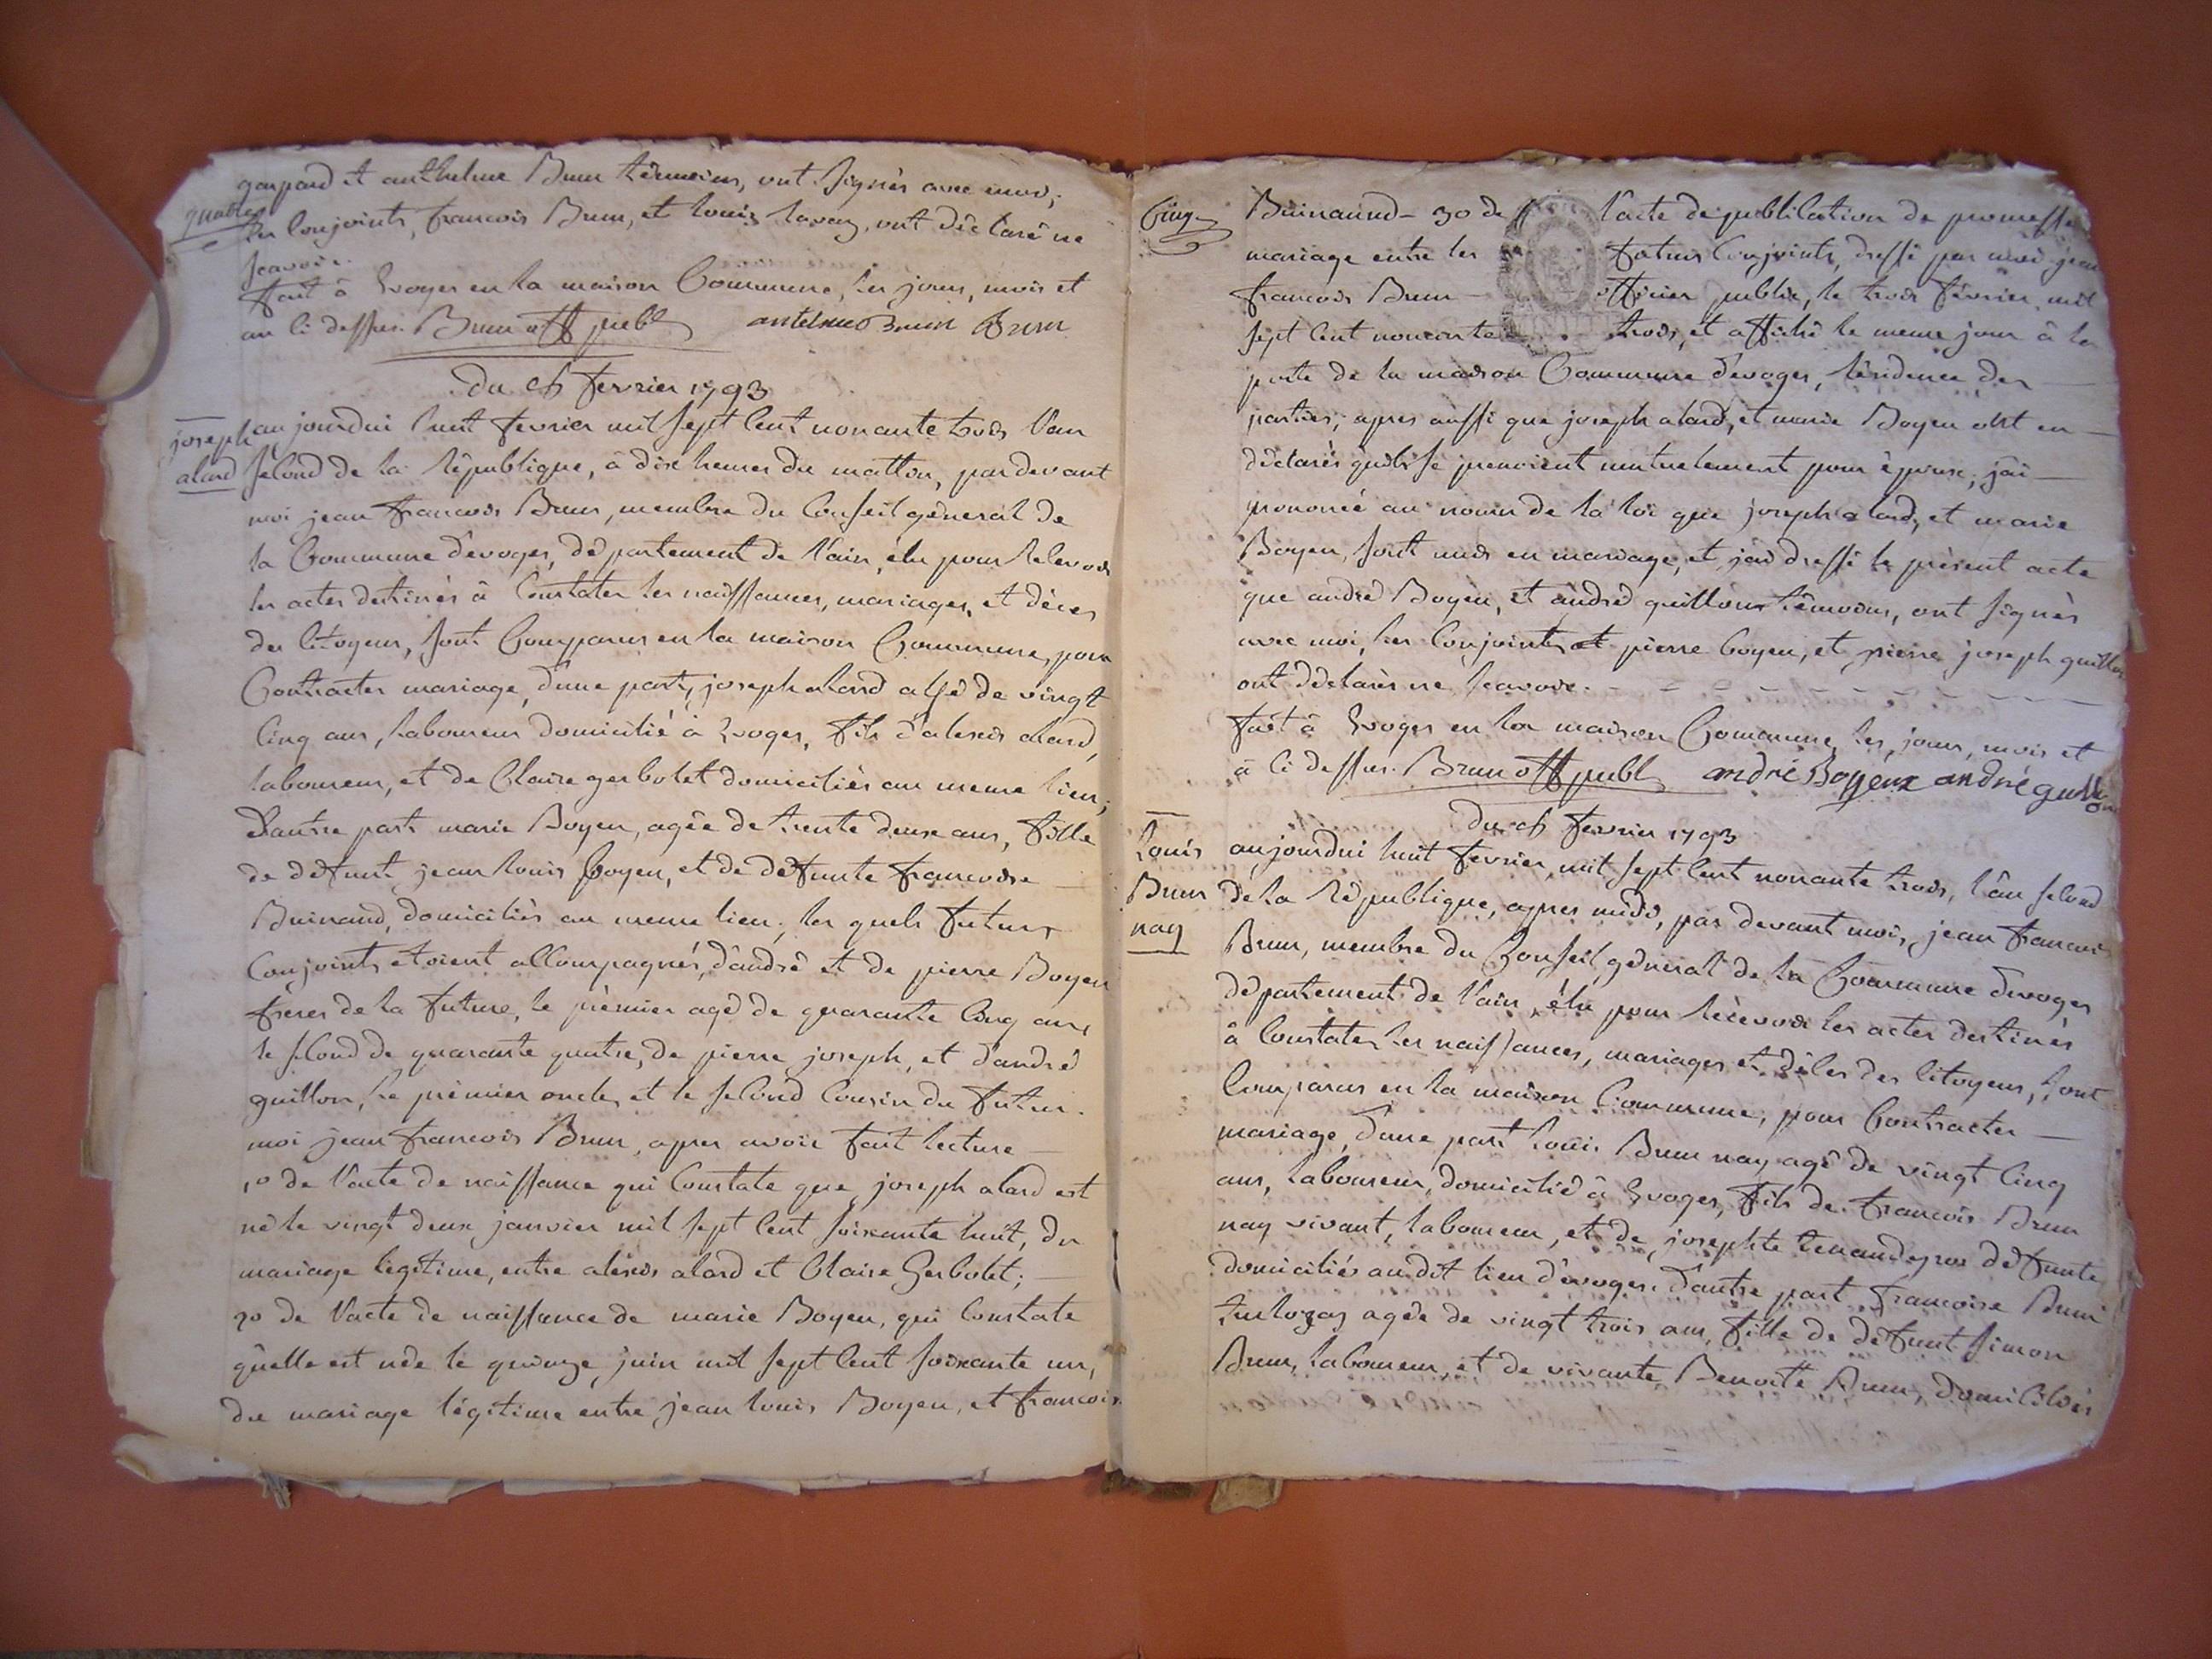 gaspard et anthelme Brun témoins, ont signés avec moi;
quatre
les Conjoints, francois Brun, et louis savay, ont déclaré ne
scavoir.
fait à Evoges en la maison Commune, les jours, mois et
an ci dessus. Brun off publ antelme Brun Brun
Du 8 fevrier 1793
joseph alard
aujourdui huit fevrier mil sept cent nonante trois l'an
second de la république, à dix heures du mattin, pardevant
moi jean francois Brun, membre du Conseil général de
la Commune d'evoges, département de l'ain, élu pour recevoir
les actes destinés à Constater les naissances, mariages, et déces
des citoyens, sont Comparus en la maison Commune, pour
Contracter mariage, d'une part, joseph alard agé de vingt
cinq ans, laboureur domicilié à Evoges, fils d'alexis alard,
laboureur, et de Claire gerbolet domiciliés au meme lieu;
D'autre part marie Boyeu, agée de trente deux ans, fille
de défunt jean louis Boyeu, et de défunte francoise —
Buinand, domiciliés au meme lieu; les quels futurs
Conjoints etoient accompagnés, d'andré et de pierre Boyeu
freres de la future, le prémier agé de quarante cinq ans,
le second de quarante quatre, de pierre joseph, et d'andré
guillon, le prémier oncle, et le second Cousin du futur.
moi jean francois Brun, apres avoir fait lecture —
1o de l'acte de naissance qui Constate que joseph alard est
né le vingt deux janvier mil sept cent soixante huit, du
mariage légitime, entre alexis alard et Claire Gerbolet; —
2o de l'acte de naissance de marie Boyeu, qui Constate
qu'elle est née le quinze juin mil sept cent soixante un,
du mariage légitime entre jean louis Boyeu, et francoise
Cinq
Buinaind - 3o de l'acte de publication de promesse
mariage entre les futurs Conjoints, dressé par moi jean
francois Brun — officier public, le trois février mil
sept cent nonante trois, et affiché le meme jour à la
porte de la maison Commune d'evoges, résidence des —
parties; apres aussi que joseph alard, et marie Boyeu ont eu —
déclarés qu'ils se prenoient mutuelement pour époux; j'ai —
prononcé au nom de la loi que joseph alard, et marie
Boyeu, sont unis en mariage, et j'ai dressé le présent acte
que andré Boyeu, et andré guillon témoins, ont signés
avec moi, les Conjoints et pierre Boyeu, et pierre joseph guillon
ont déclarés ne scavoir. - - - - - - -
fait à Evoges en la maison Commune les, jours, mois et
a ci dessus. Brun off publ andré Boyeux andré guillon
du 8 fevrier 1793
Louis Brun nay
aujourdui huit fevrier, mil sept cent nonante trois, l'an second
de la république, apres midi, par devant moi, jean francois
Brun, membre du Conseil, général de la Commune d'evoges
département de l'ain, élu pour recevoir les actes destinés
à Constater les naissances, mariages et déces des citoyens, sont
Comparus en la maison Commune, pour Contracter —
mariage, d'une part louis Brun nay agé de vingt cinq
ans, laboureur, domicilié à Evoges, fils de francois Brun
nay vivant, laboureur, et de josephte tenandgros défunte
domiciliés au dit lieu d'evoges. d'autre part francoise Brun
agée de vingt trois ans, fille de défunt simon
Brun, laboureur, et de vivante Benoite Brun, domiciliés